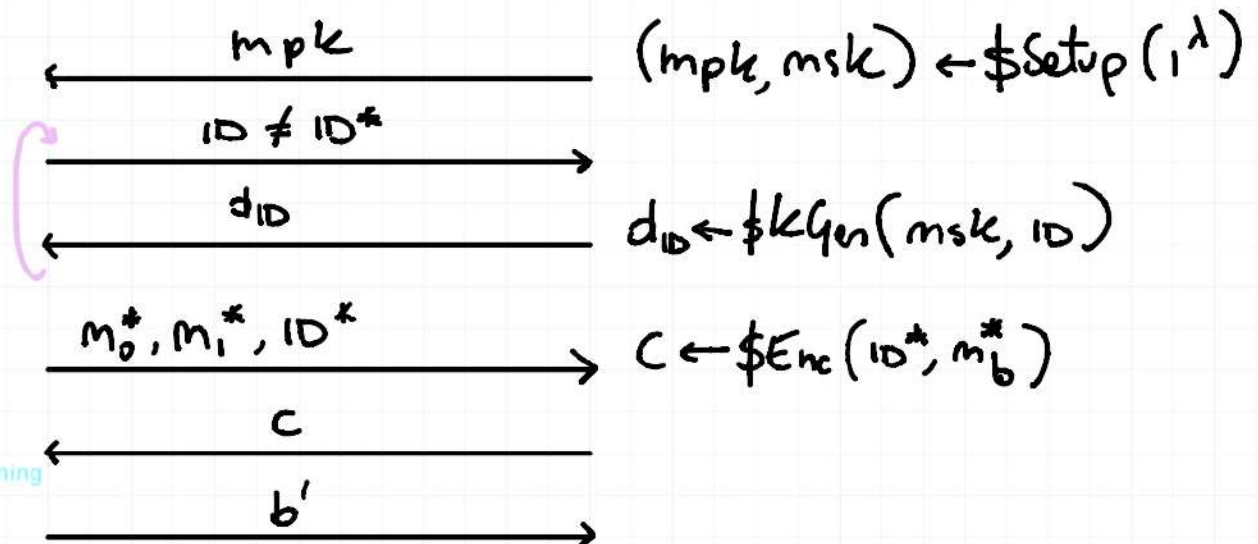 mpk
(mpk, msk) ←$Setup(1^λ)
ID ≠ ID*
d_ID
d_ID ←$KGen(msk, ID)
m_0^*, m_1^*, ID*
C ←$Enc(ID*, m_b^*)
C
ning
b'